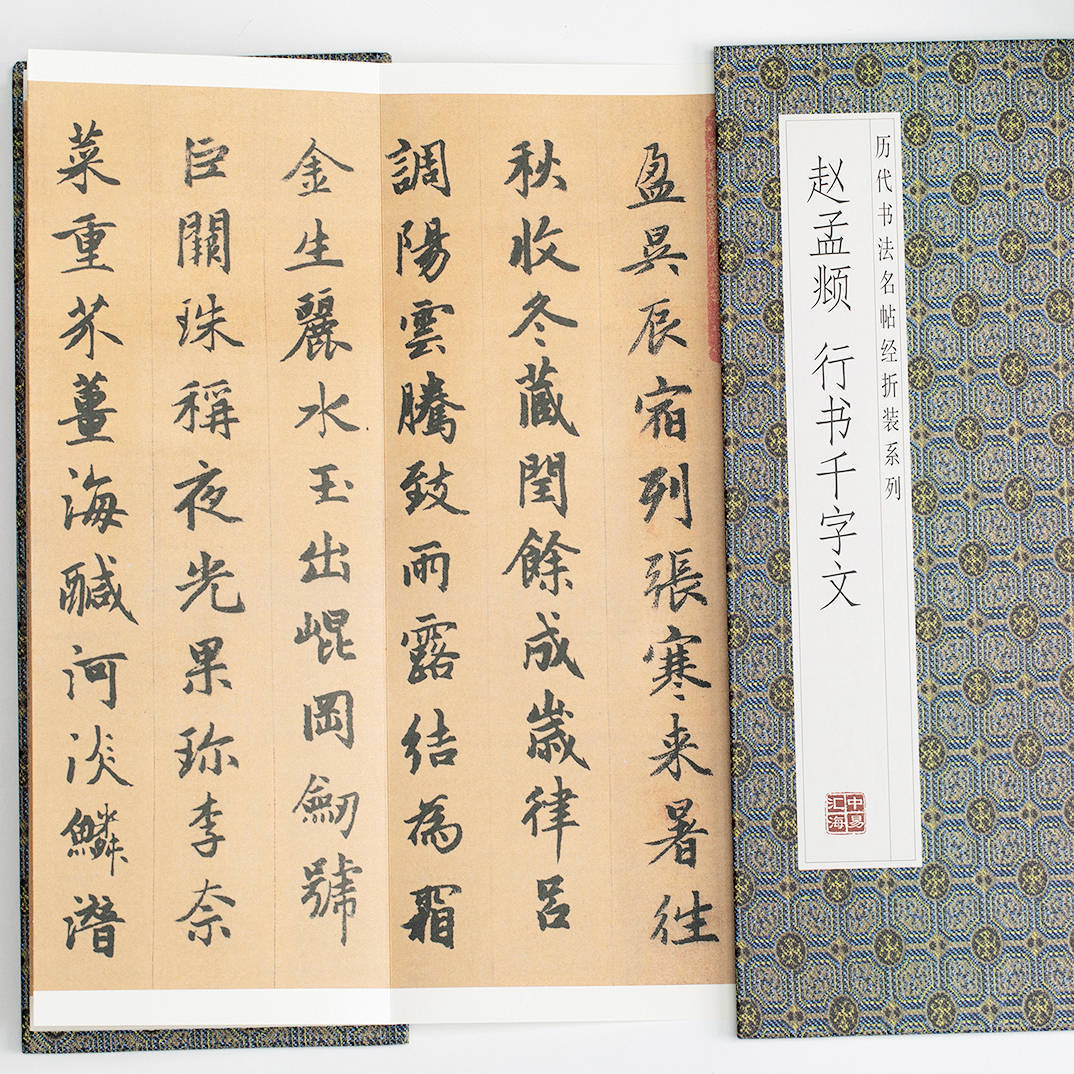 历代书法名帖经折装系列
赵孟頫 行书千字文
中易
汇海
盈昃辰宿列張寒来暑往
秋收冬蔵閏餘成歲律吕
調陽雲騰致雨露結為霜
金生麗水玉出崐岡劒號
巨闕珠稱夜光果珎李柰
菜重芥薑海醎河淡鱗潛